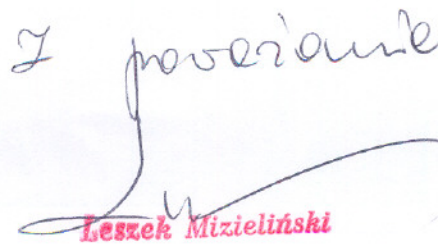 Z poważanie
Leszek Mizieliński